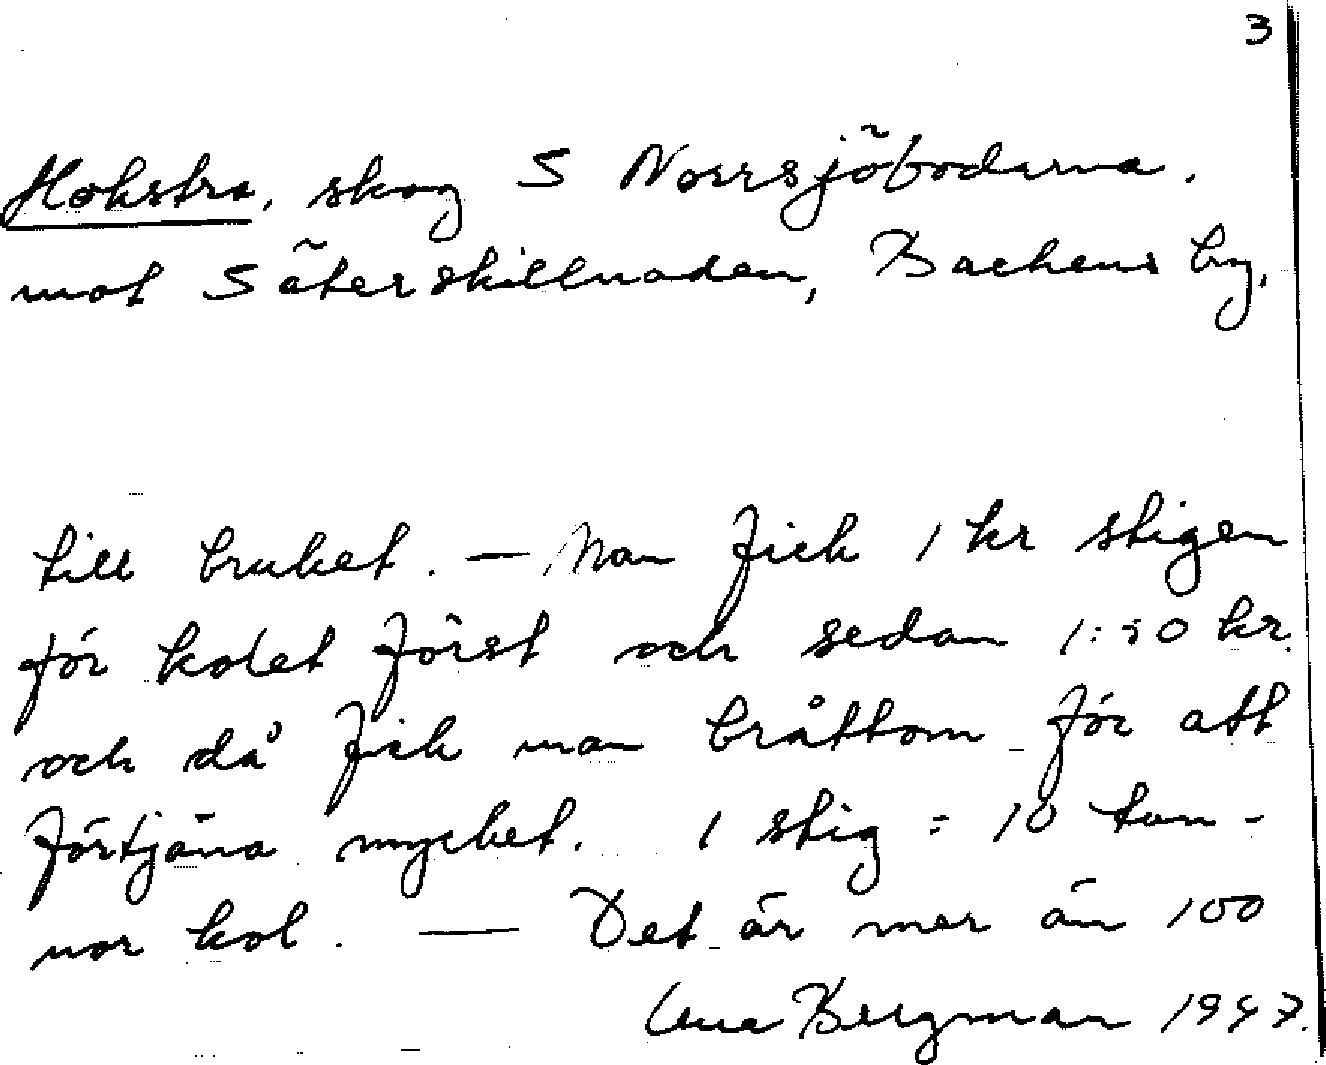 3
Hokstra, skog S Norrsjöbodarna.
mot Säterskillnaden, Backens by.
till bruket. — Man fick 1 kr stigen
för kolet först och sedan 1:50 kr.
och då fick man bråttom för att
förtjäna mycket. 1 stig = 10 tun-
nor kol. — Det är mer än 100
Bergman 1947.